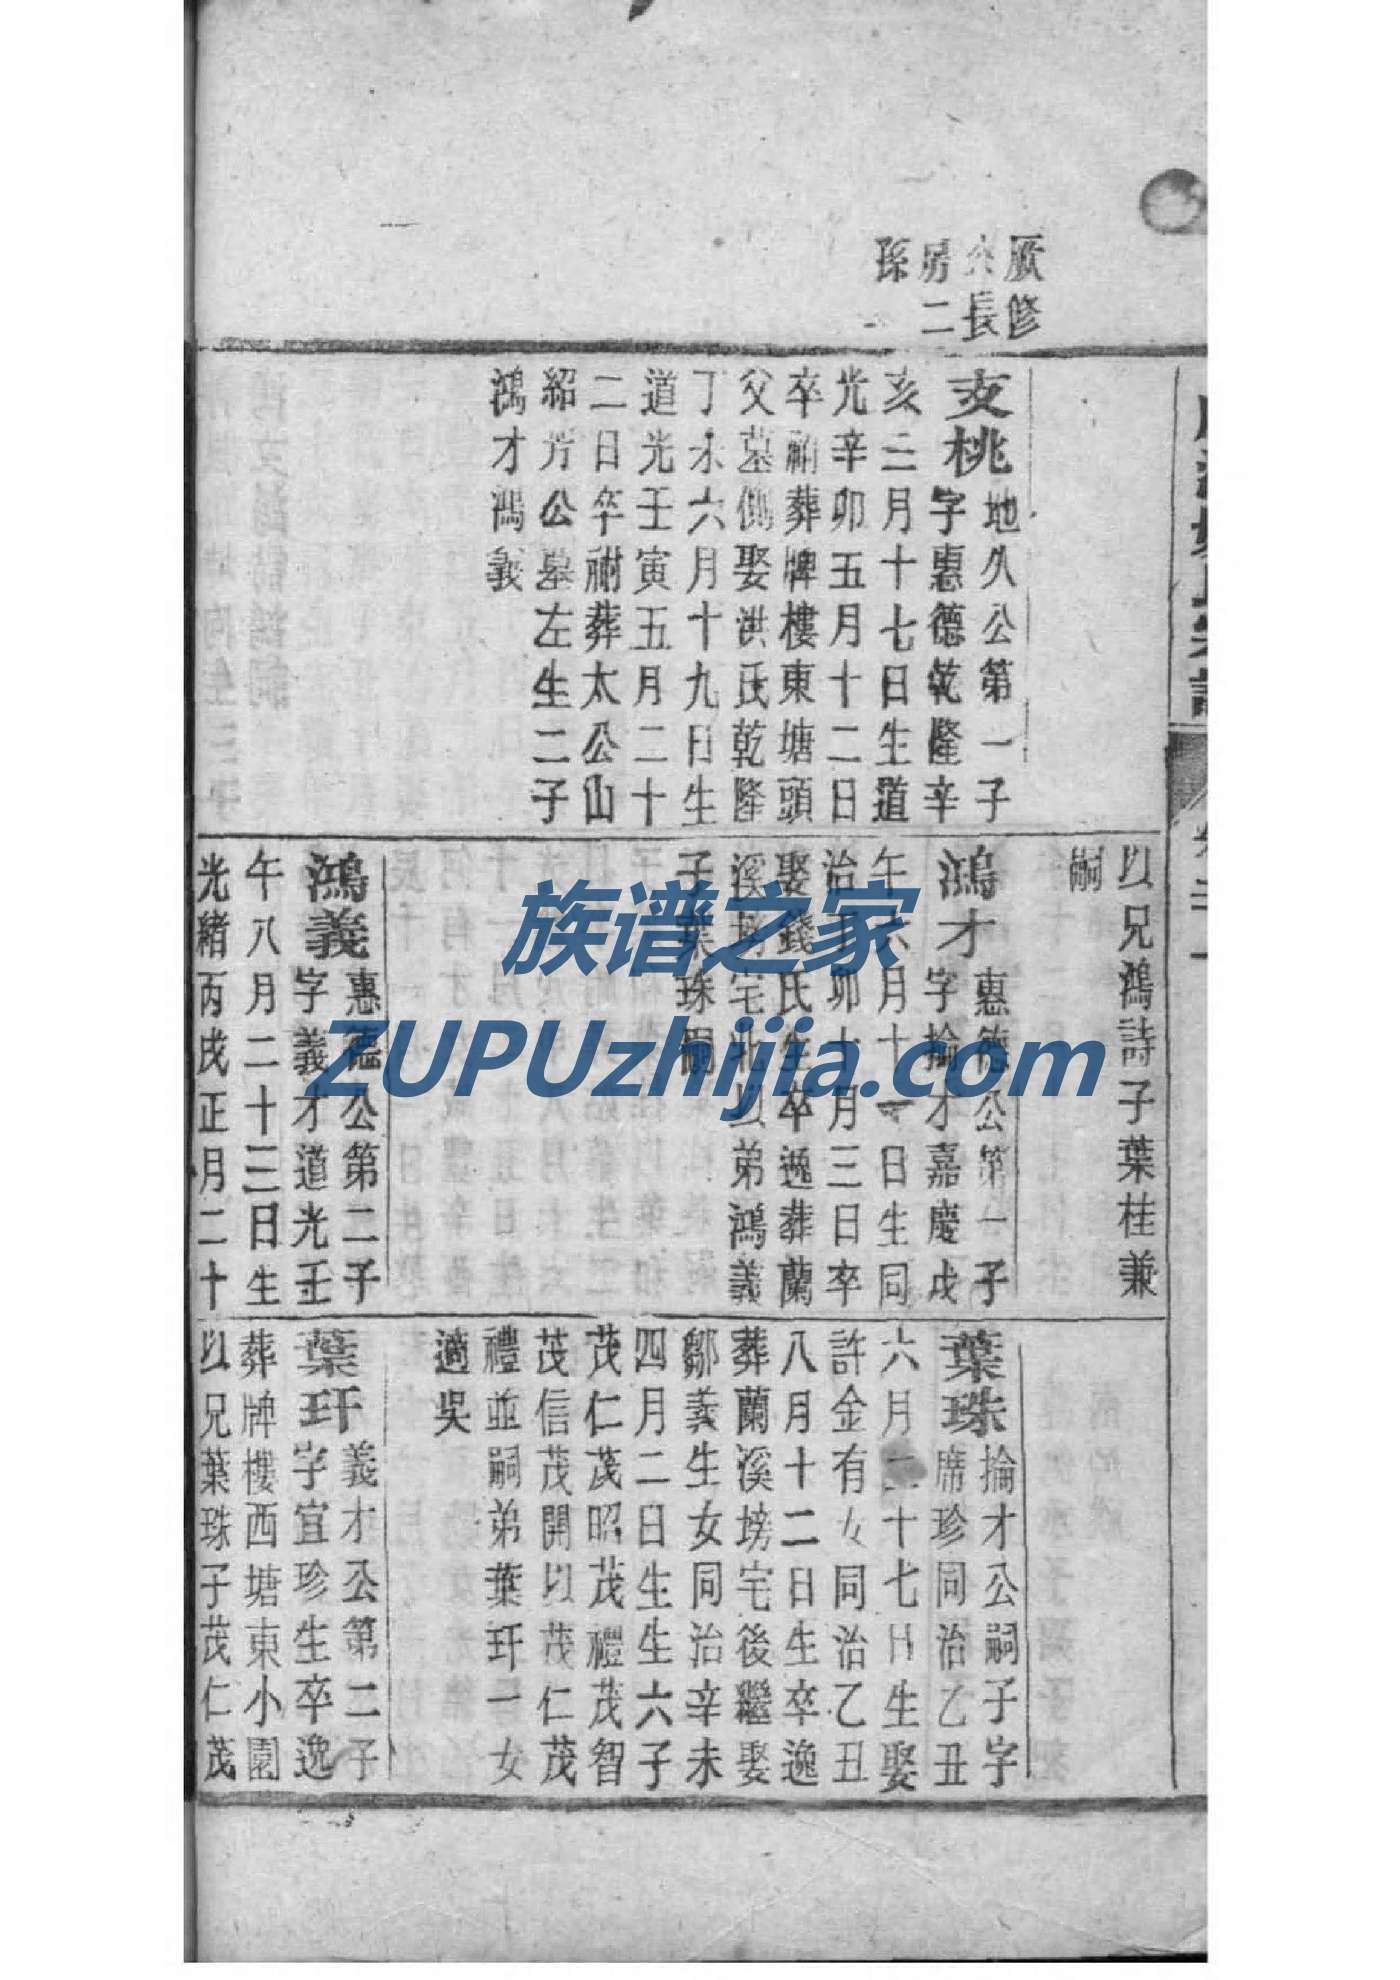 厥修
公長
房二
孫
支桃
地久公第一子
字惠德乾隆辛
亥二月十七日生道
光辛卯五月十二日
卒祔葬牌樓東塘頭
父墓側娶洪氏乾隆
丁未六月十九日生
道光壬寅五月二十
二日卒祔葬太公山
紹芳公墓左生二子
鴻才鴻義
以兄鴻詩子葉桂兼
嗣
鴻才
惠德公第一子
字掄才嘉慶戊
午六月十一日生同
治丁卯十月三日卒
娶錢氏生卒逸葬蘭
溪塝宅北以弟鴻義
子葉珠嗣
鴻義
惠德公第二子
字義才道光壬
午八月二十三日生
光緒丙戌正月二十
葉珠
掄才公嗣子字
席珍同治乙丑
六月二十七日生娶
許金有女同治乙丑
八月十二日生卒逸
葬蘭溪塝宅後繼娶
鄒義生女同治辛未
四月二日生生六子
茂仁茂昭茂禮茂智
茂信茂開以茂仁茂
禮並嗣弟葉玕一女
適吳
葉玕
義才公第二子
字宜珍生卒逸
葬牌樓西塘東小園
以兄葉珠子茂仁茂
族谱之家
ZUPUzhijia.com